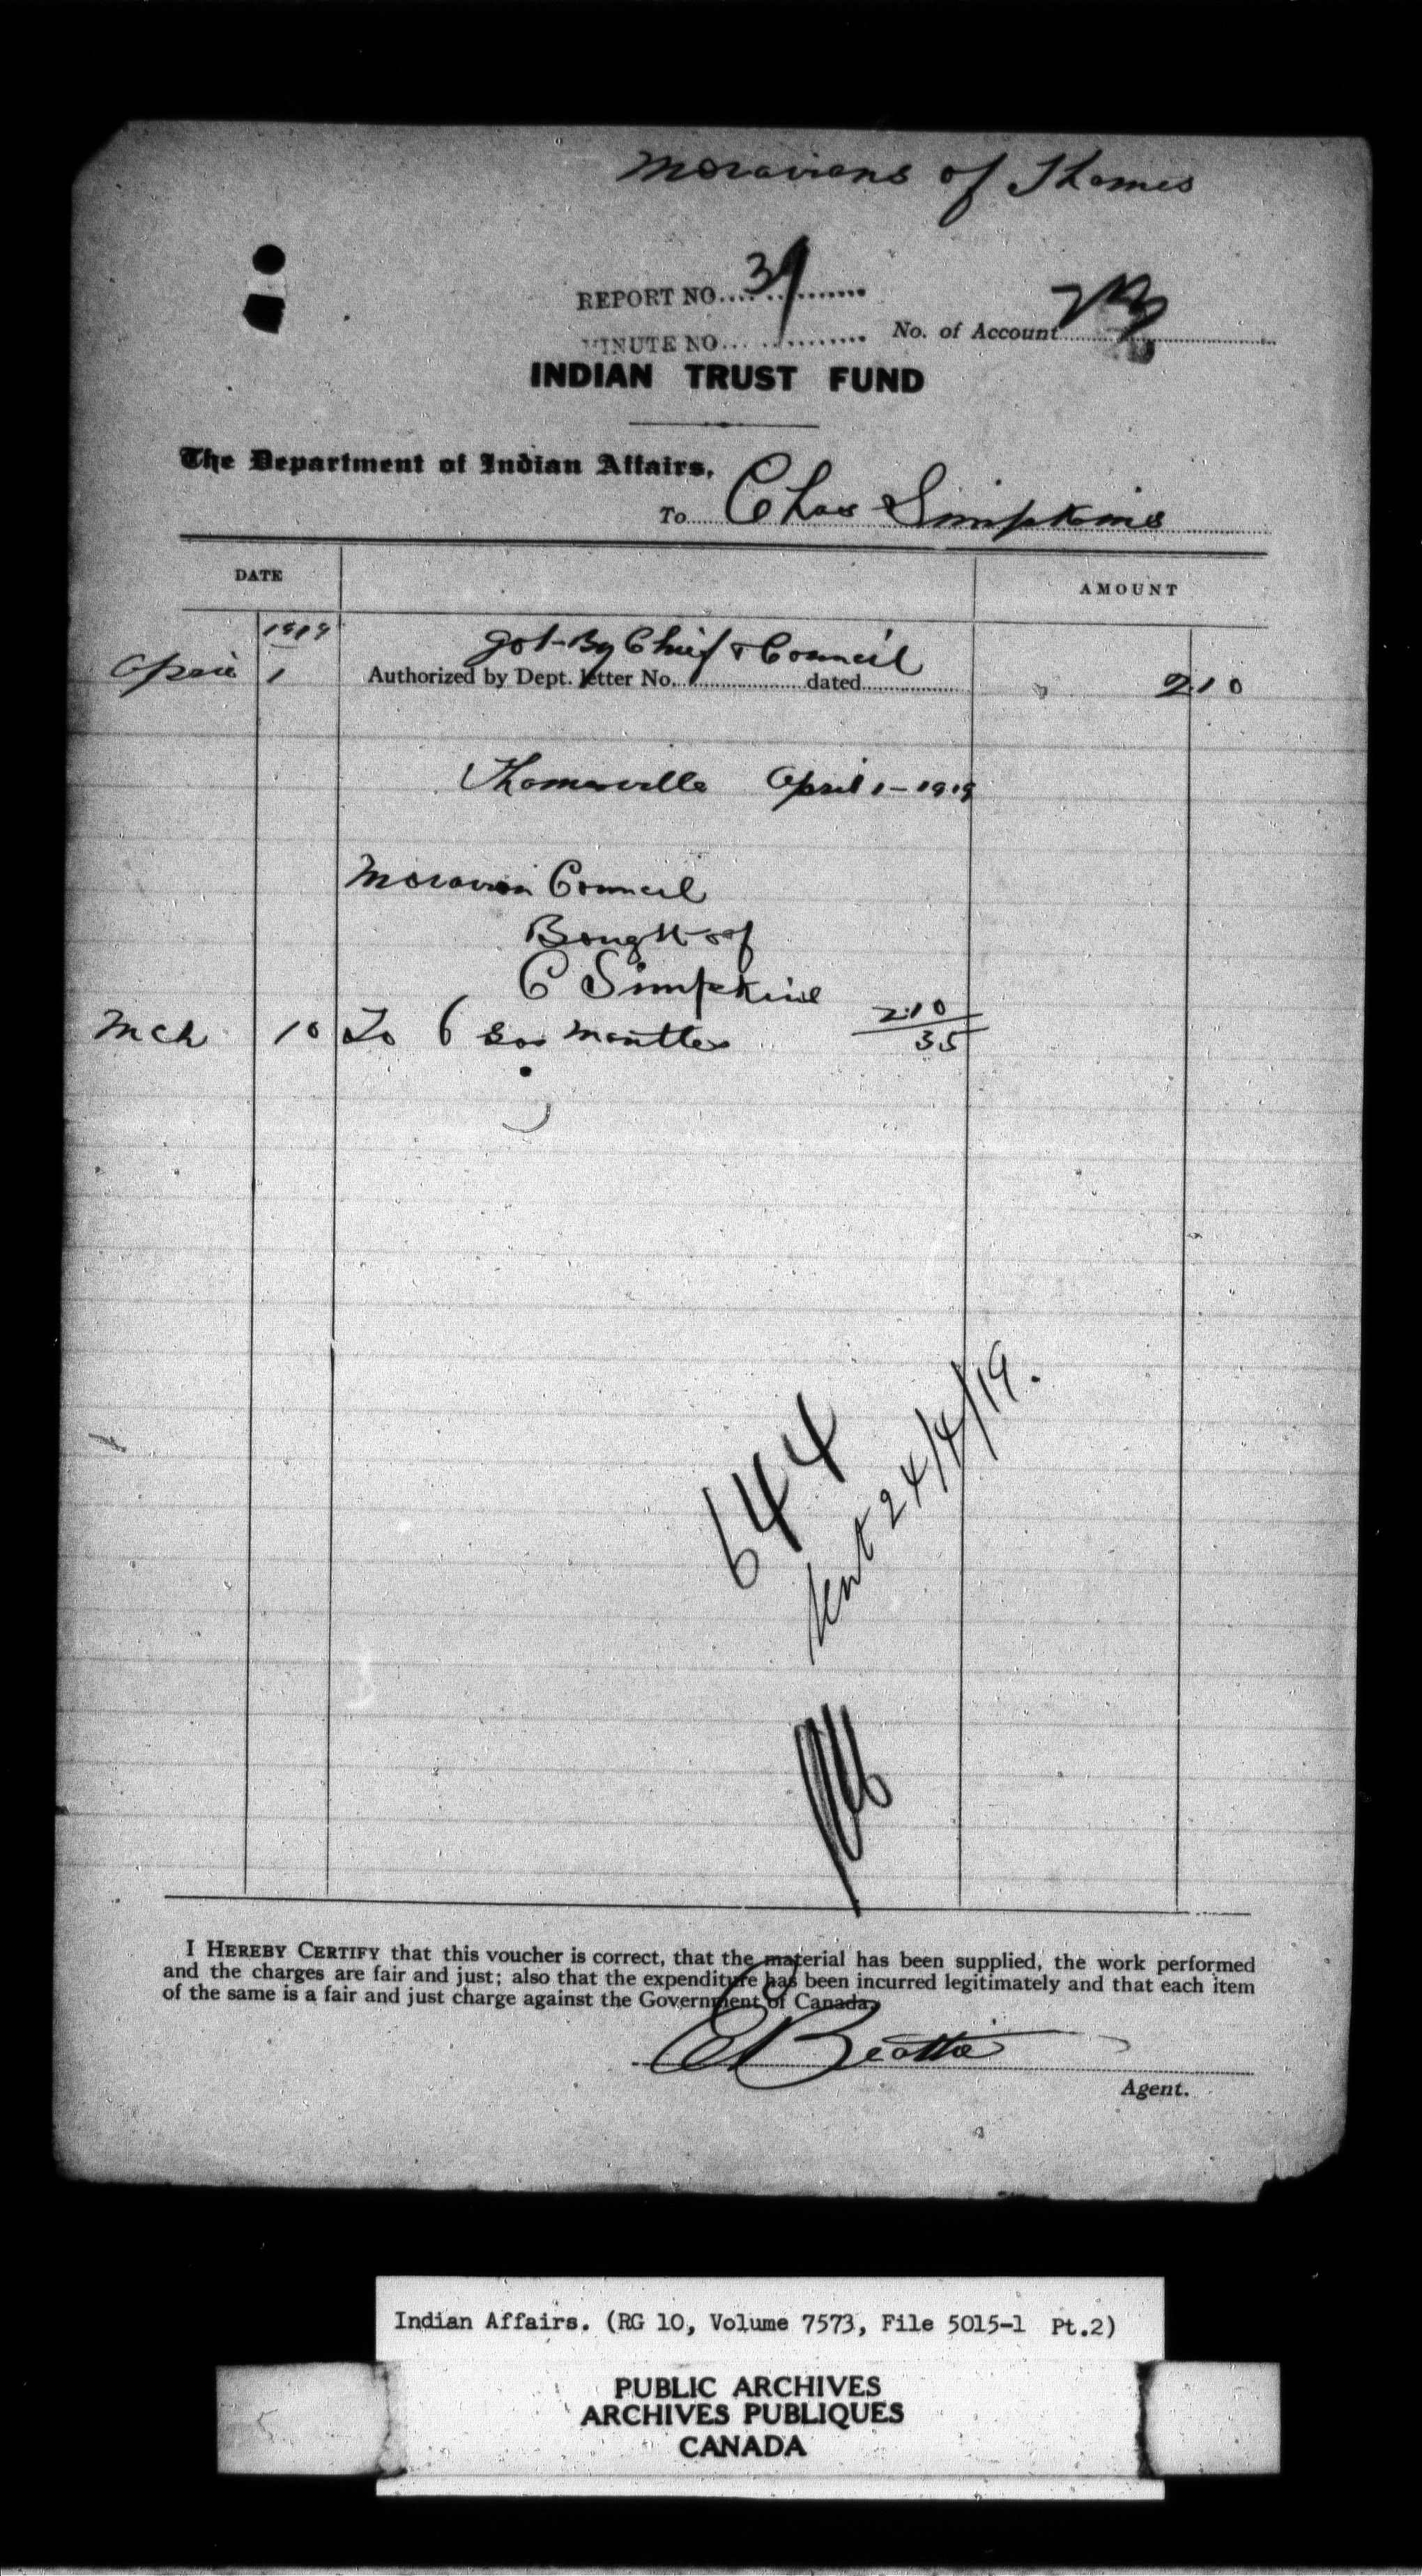 Moravians of Thames
REPORT NO.... 39 ..........
MINUTE NO... .......... No. of Account
INDIAN TRUST FUND
The Department of Indian Affairs,
To Chas Simpkins
DATE AMOUNT
1919
April 1 got By Chief & Council 2.10
Authorized by Dept. letter No. dated
Thamesville April 1-1919
Moravian Council
Bought of
C Simpkins
Mch 10 To 6 Gas Mantles 2.10
35
644
Sent 24/4/19.
I HEREBY CERTIFY that this voucher is correct, that the material has been supplied, the work performed
and the charges are fair and just; also that the expenditure has been incurred legitimately and that each item
of the same is a fair and just charge against the Government of Canada.
Beattie
Agent.
Indian Affairs. (RG 10, Volume 7573, File 5015-1 Pt.2)
PUBLIC ARCHIVES
ARCHIVES PUBLIQUES
CANADA